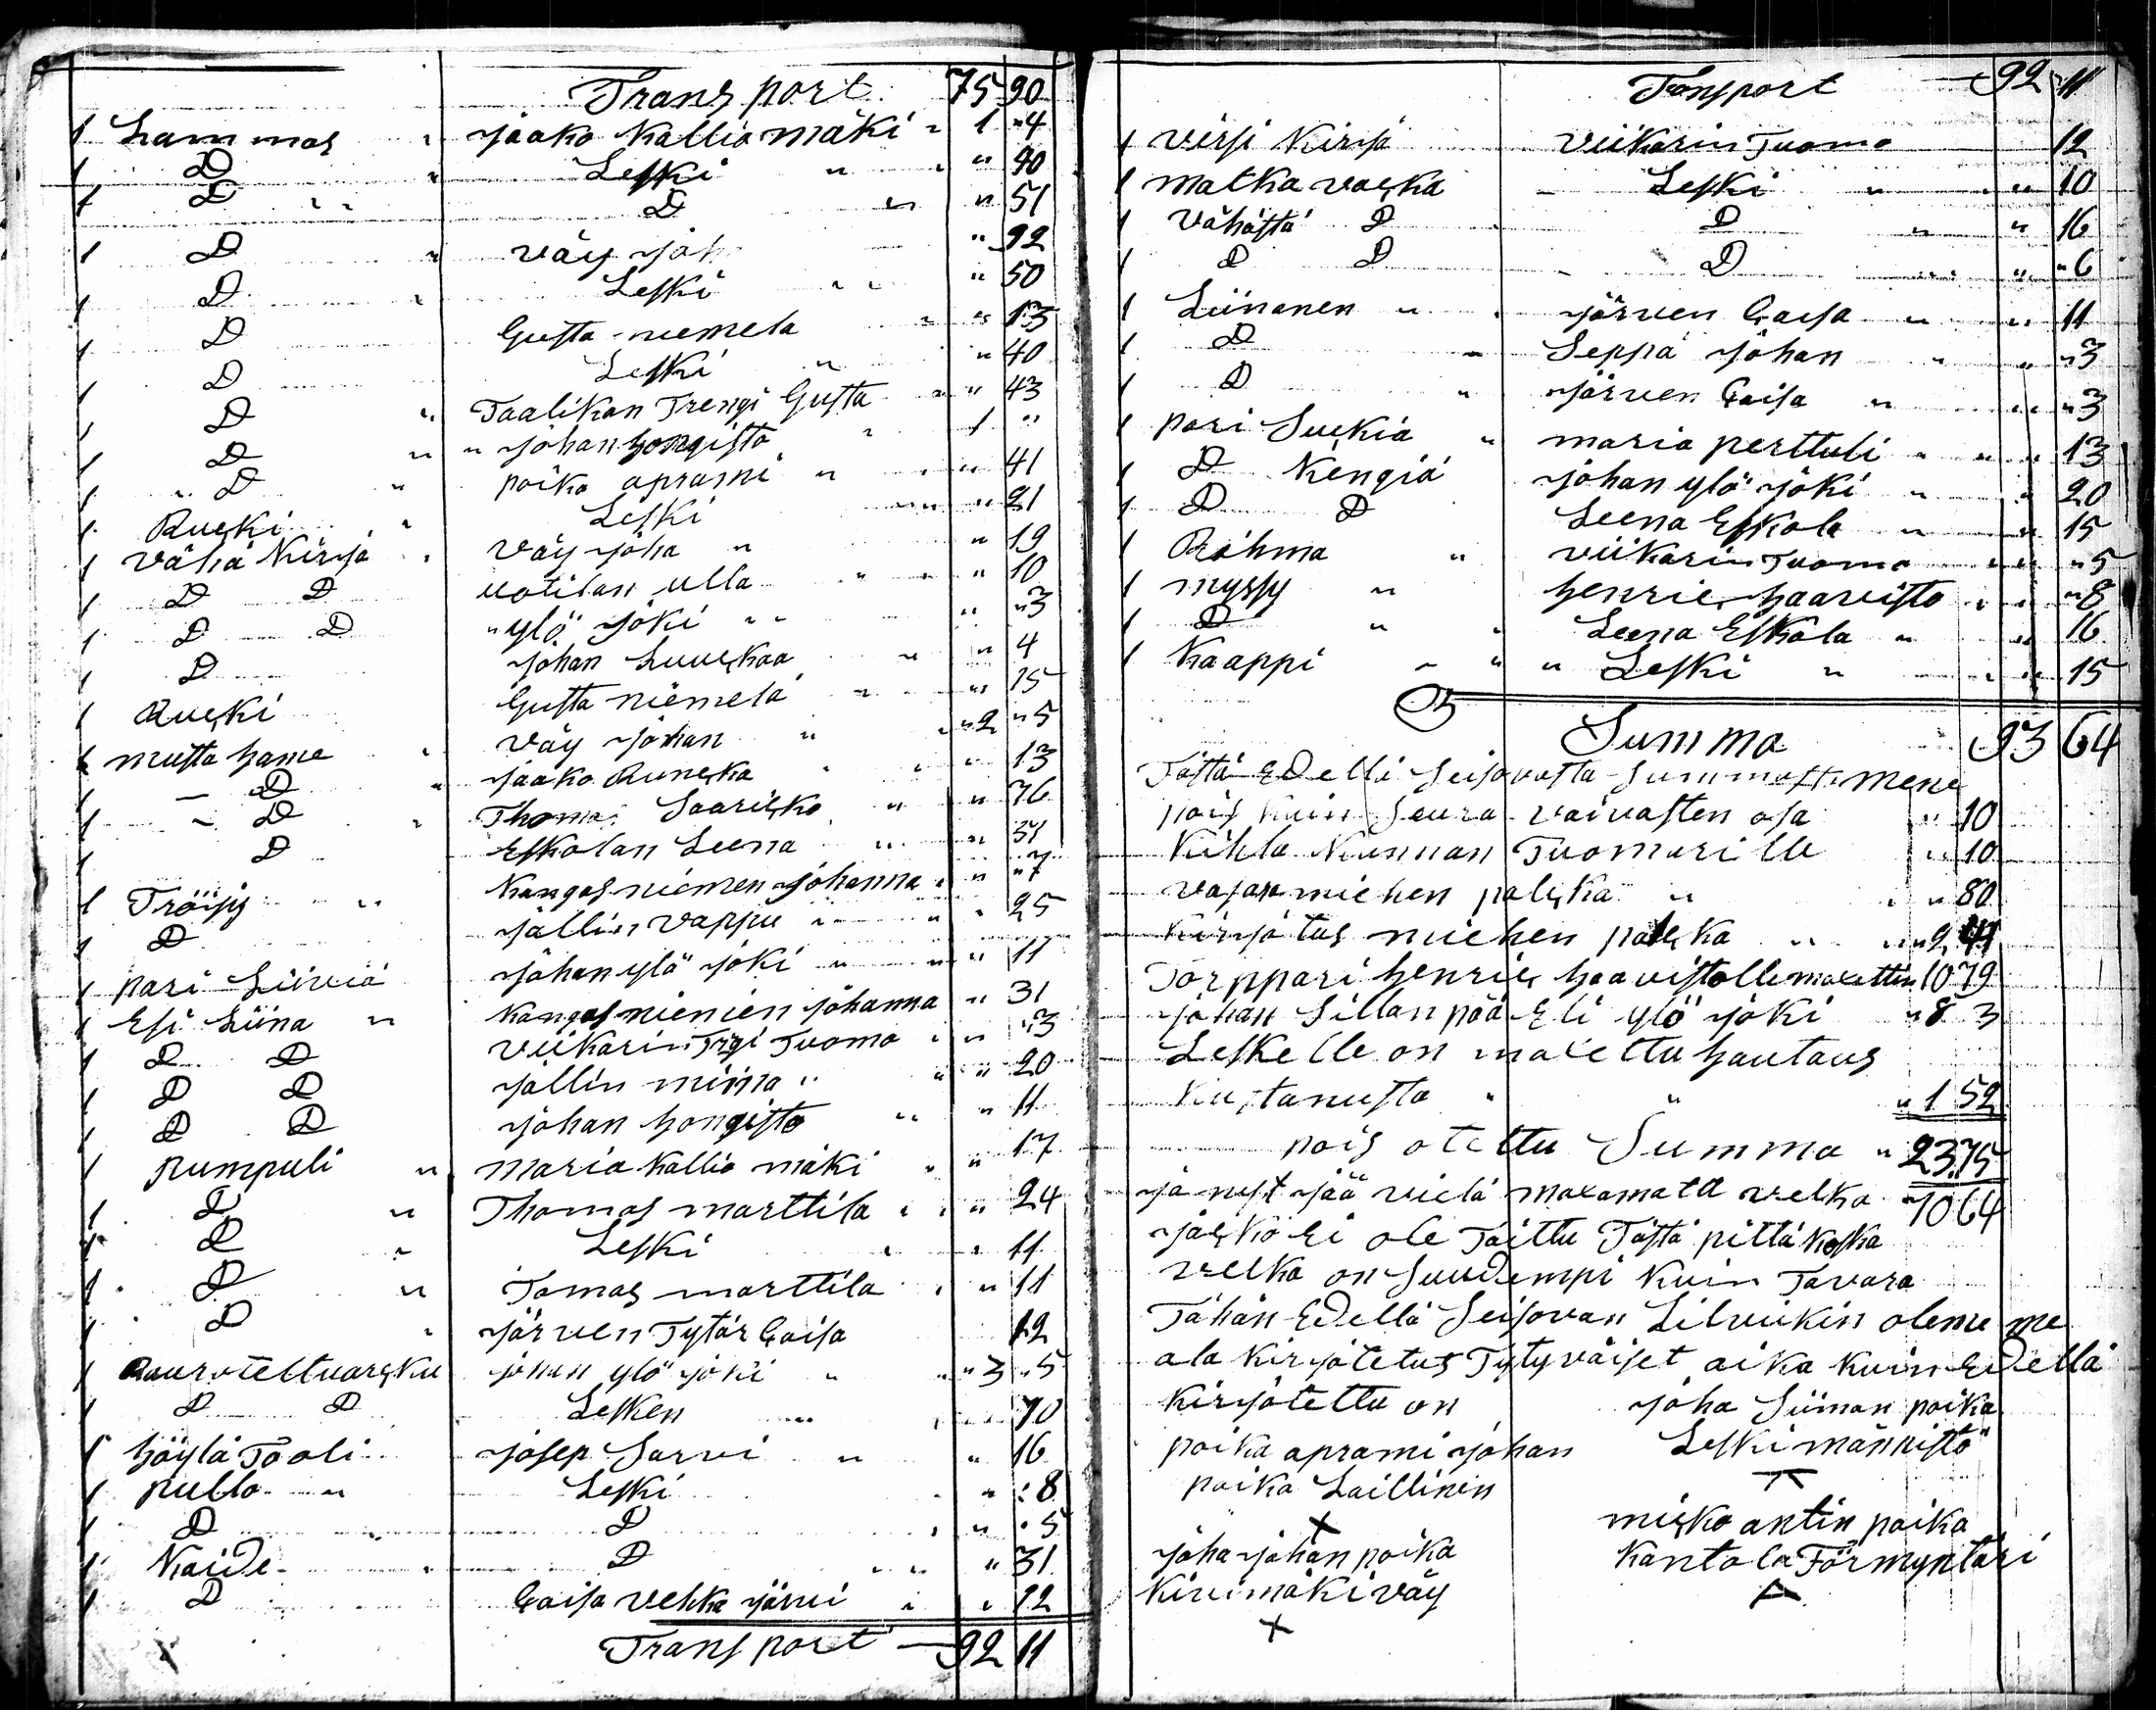 Transport 75 90
1 Lammas " Jaako Kalliomäki " 1 "4
1 D " Leski " " 90
1 D " " D " " 51
1 D " väy joh " 92
1 D " Leski " " " 50
1 D Gusta niemela " " 13
1 D Leski " " 40
1 D " Taalikan Trengi Gusta " " 43
1 D " " johan hongisto " 1 "
1 " D " poika aprami " " 41
1 Rucki " Leski " 21
1 vähä Kirja " väy joha " " 19
1 D D uotilan ulla " " " 10
1 D D "ylö joki " " " "3
1 D johan Luuskaa " " 4
1 Rucki Gusta niemelä " " 15
1 musta hame " väy johan " "2 "5
1 — D " jaako Runcka " " 13
1 ~ D " Thomas Saaricko " " 76
1 D Eskolan Leena " " 31
1 Tröijy " Kangasniemen johanna " " "7
1 D jällin vappu " " 25
1 pari Liiviä johan ylö joki " " 11
1 Esi Liina " Kangasniemen johanna " 31
1 D D viikarin Trgi Tuomo " " "3
1 D D jällin miina " " " 20
1 D D johan hongisto " " 11
1 pumpuli " maria Kallio mäki " " 17
1 D " Thomas marttila " " " 24
1 D " Leski " " 11
1 D " Tomas marttila " " 11
1 D " järven Tytär Caisa 12
1 Rautotettuarcku johan ylö joki " "3 "5
1 D D Lesken " 70
1 höylä Tooli josep Sarvi " " 16
1 pullo " Leski " "8
1 D D " " "5
1 Kaide D " " 31
1 D Caisa vehka järvi " " 12
Transport — 92 11
Tansport 92 11
1 virsi Kirja viikarin Tuomo 12
1 matka vacka Leski " " 10
1 vähästä D D " " 16
1 D D D " " "6
1 Liinanen " järven Caisa " " 11
1 D " Seppä johan " " "3
1 D " järven Caisa " " "3
1 pari Suckia " maria perttuli " " " 13
1 D Kengiä johan ylö joki " " 20
1 D D Leena Eskola " " 15
1 Röhma " viikarin Tuomo " " "5
1 myssy " henric haavisto " " "8
1 D " " Leena Eskola " " 16
1 Kaappi " " " Leski " " " 15
Summa 93 64
Tästä Edellä seisovasta Summasta mene
pois Kuin Seura vaivasten osa " 10
Kihla Kunnan Tuomarille " 10
vasara miehen palcka " " " 80
Kirjotus miehen palcka " "2 41
Torppari henric haavistolle maxettu 10 79
johan Sillanpää Eli ylö joki "8 3
Leskelle on maxettu hautaus
Kustanusta " " "1 52
pois otettu Summa " 23 75
ja nyt jää vielä maxamata velka 70 64
jacko Ei ole Taittu Tästä pittä koska
velka on suudempi Kuin Tavara
Tähän Edellä Seisovan Lilvikin oleme me
ala kirjotetus Tytyväiset aika kuin Edellä
kirjotettu on joha Siiman poika
poika aprami johan Leski männistö
poika Laillinen
misko antin poika
joha johan poika Kantola Förmyntäri
Kivimäki väy